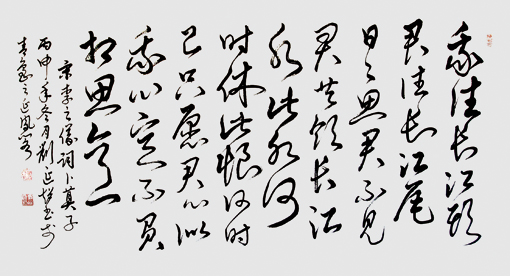 我住长江头
君住长江尾
日日思君不见
君共饮长江
水此水何
时休此恨何时
已只愿君心似
我心定不负
相思意
宋李之仪词卜算子
丙申年冬月刘延书于
青岛之